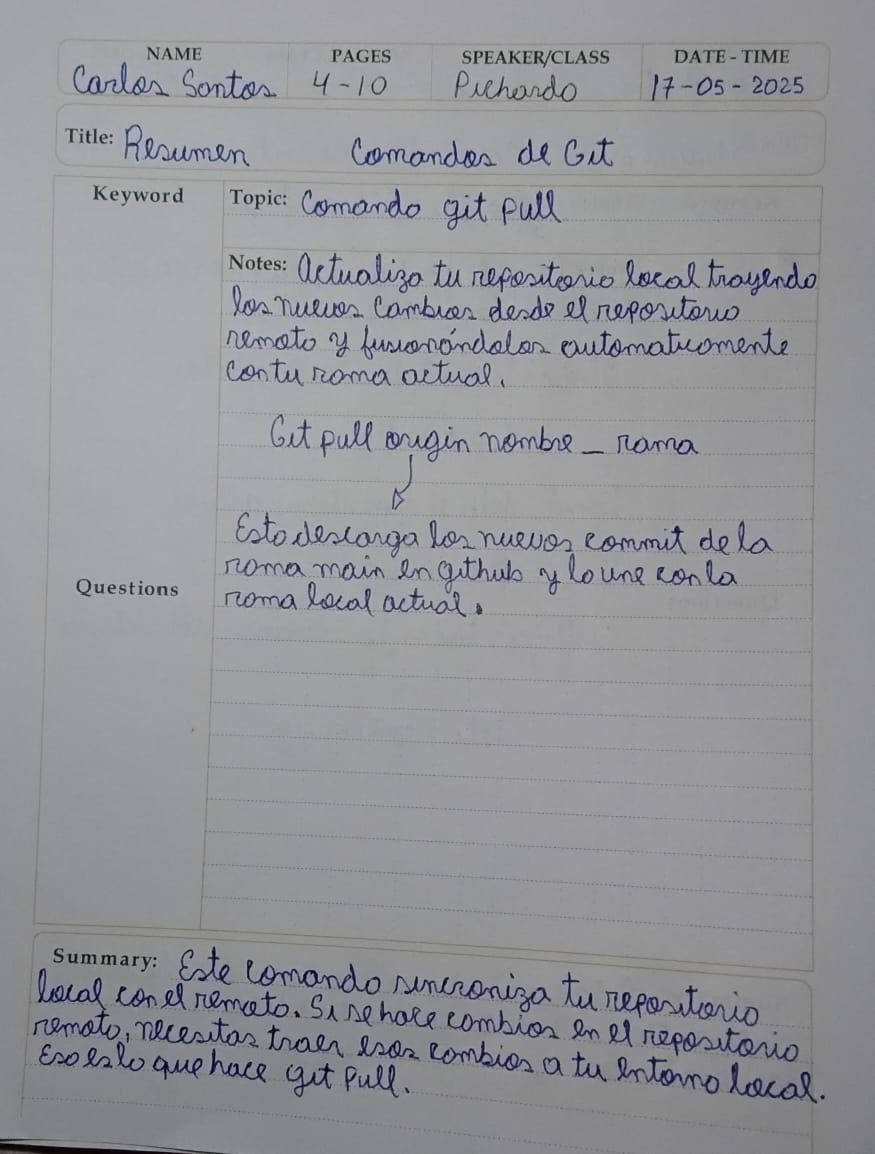 NAME PAGES SPEAKER/CLASS DATE - TIME
Carlos Santos 4-10 Pichardo 17-05-2025
Title: Resumen Comandos de Git
Keyword Topic: Comando git pull
Notes: Actualiza tu repositorio local trayendo
los nuevos cambios desde el repositorio
remoto y fusionándolos automaticamente
con tu rama actual.
Git pull origin nombre_rama
Esto descarga los nuevos commit de la
rama main en github y lo une con la
Questions rama local actual.
Summary: Este comando sincroniza tu repositorio
local con el remoto. Si se hace cambios en el repositorio
remoto, necesitas traer esos cambios a tu entorno local.
Eso es lo que hace git pull.